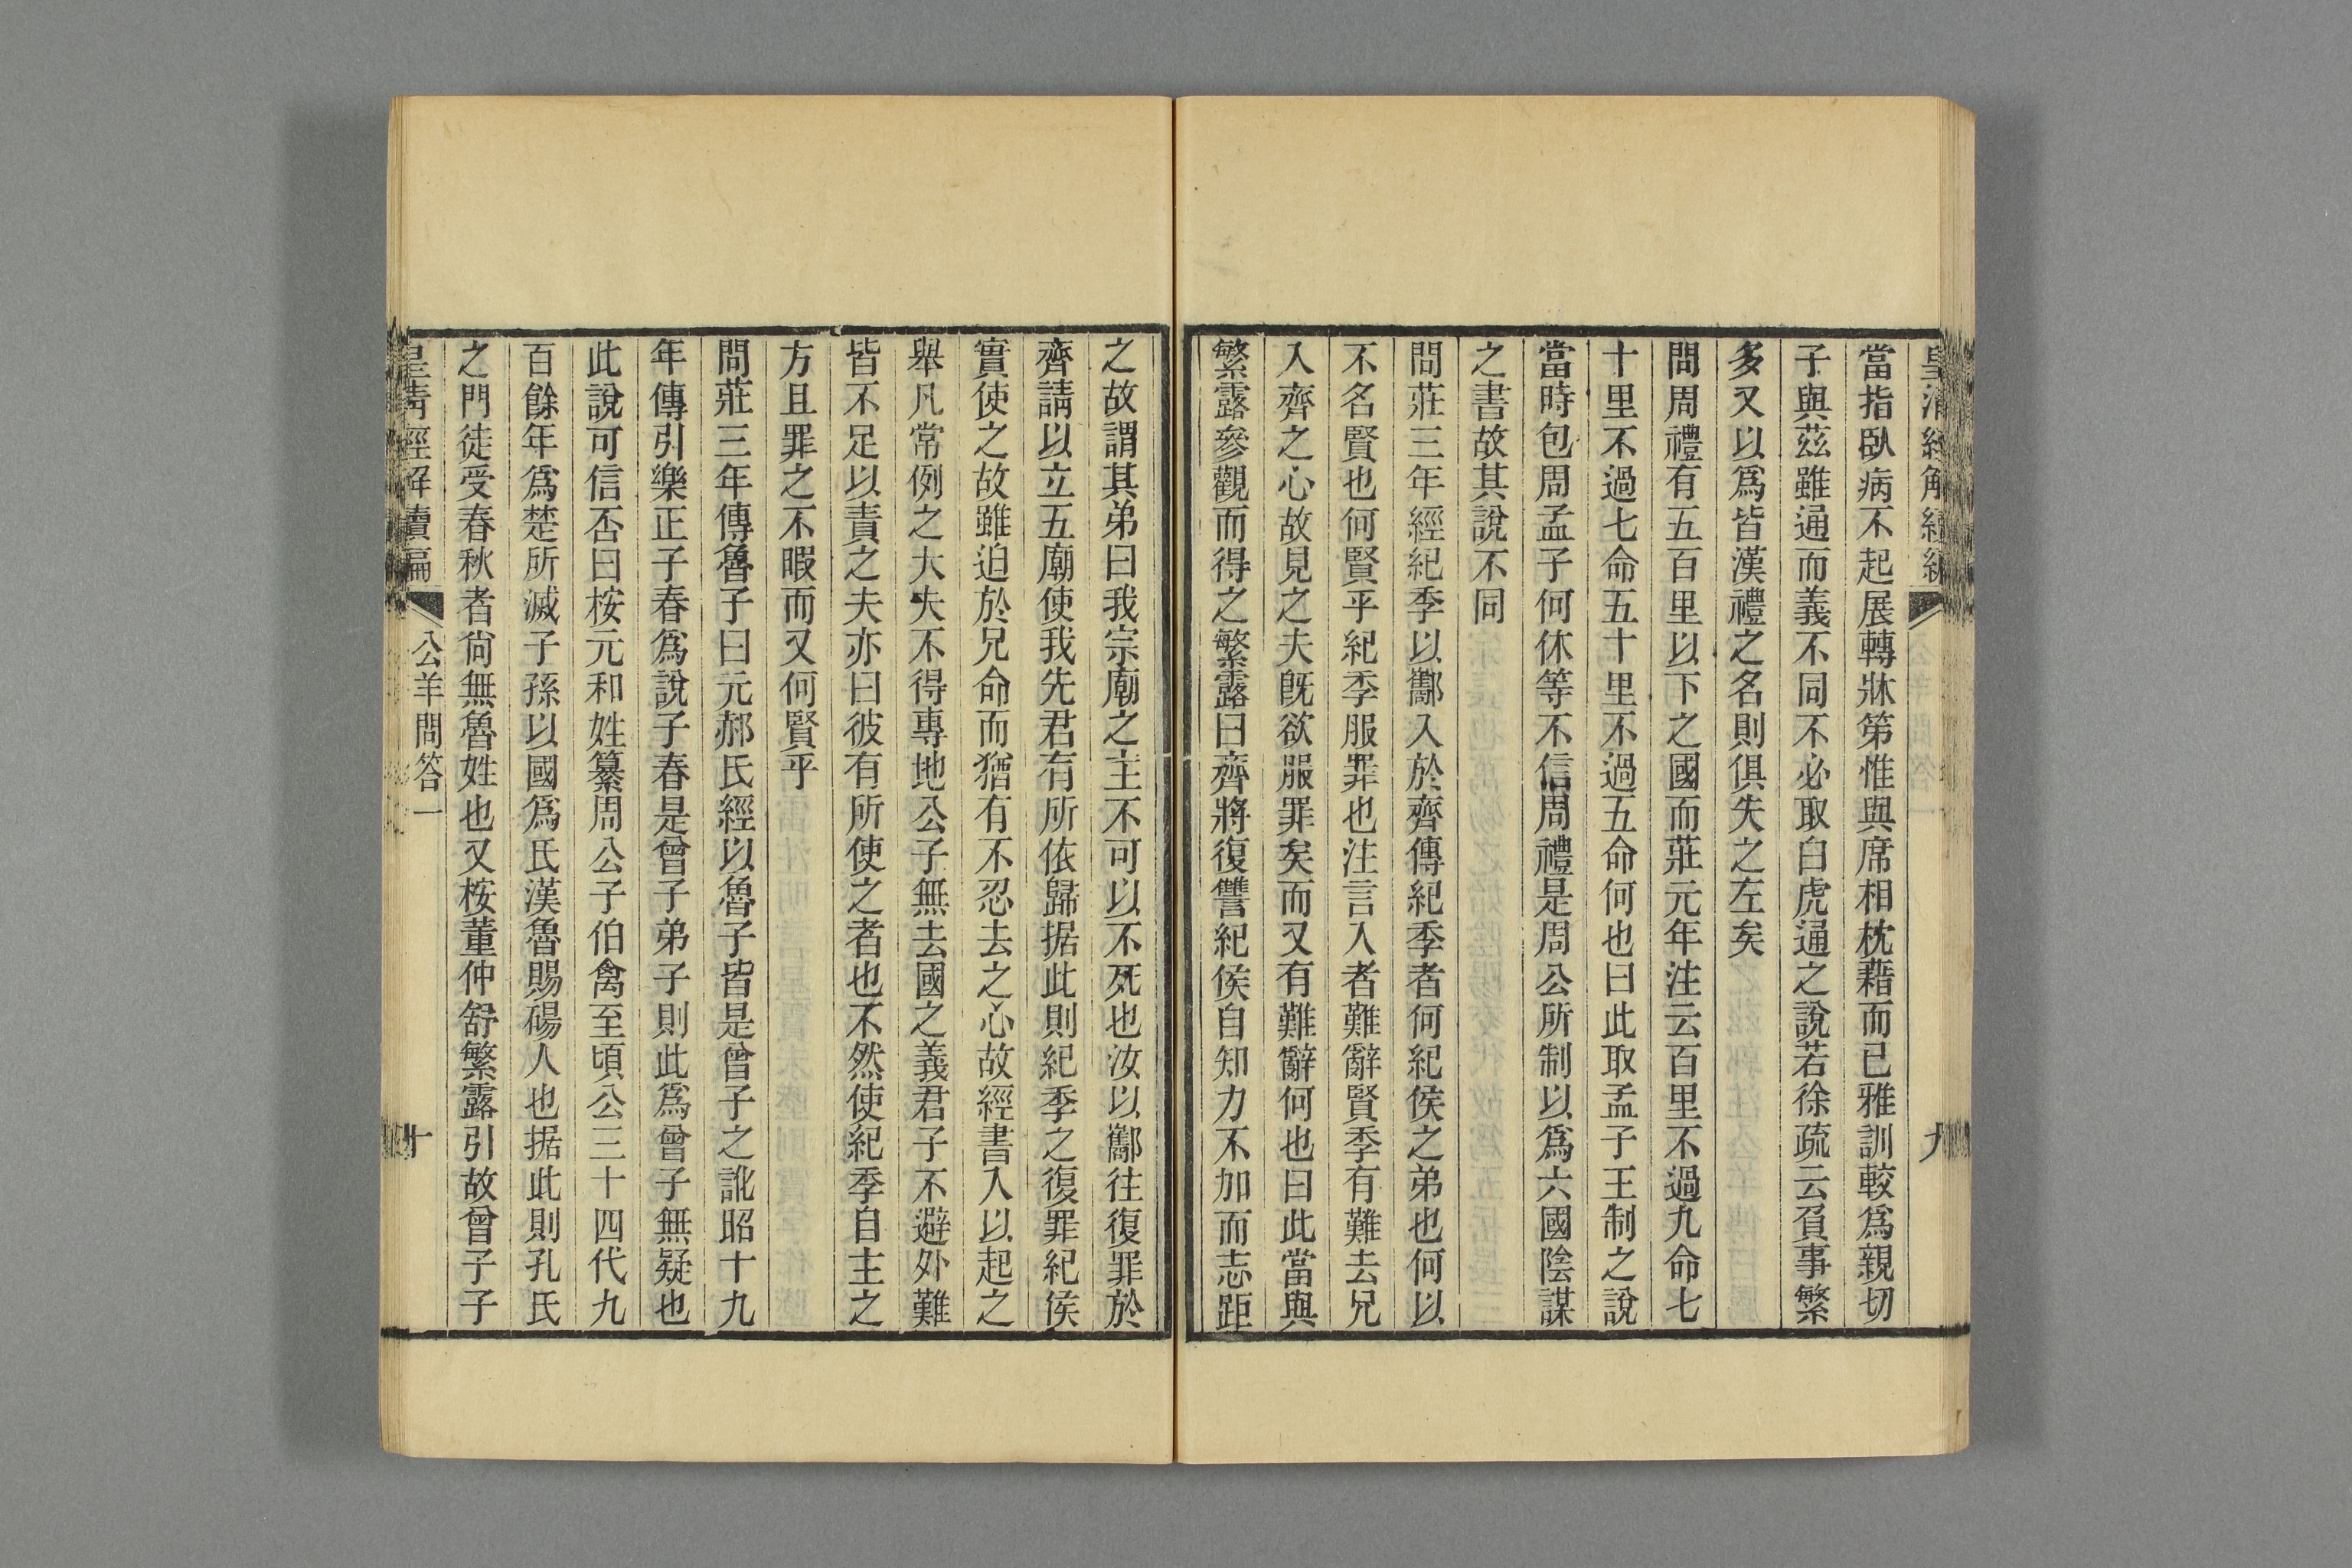 當指臥病不起展轉牀笫惟與席相枕藉而已雅訓較爲親切
子與茲雖通而義不同不必取白虎通之說若徐疏云負事繁
多又以爲皆漢禮之名則俱失之左矣
問周禮有五百里以下之國而莊元年注云百里不過九命七
十里不過七命五十里不過五命何也曰此取孟子王制之說
當時包周孟子何休等不信周禮是周公所制以爲六國陰謀
之書故其說不同
問莊三年經紀季以酅入於齊傳紀季者何紀侯之弟也何以
不名賢也何賢乎紀季服罪也注言入者難辭賢季有難去兄
入齊之心故見之夫旣欲服罪矣而又有難辭何也曰此當與
繁露參觀而得之繁露曰齊將復讐紀侯自知力不加而志距
之故謂其弟曰我宗廟之主不可以不死也汝以酅往復罪於
齊請以立五廟使我先君有所依歸据此則紀季之復罪紀侯
實使之故雖迫於兄命而猶有不忍去之心故經書入以起之
舉凡常例之大夫不得專地公子無去國之義君子不避外難
皆不足以責之夫亦曰彼有所使之者也不然使紀季自主之
方且罪之不暇而又何賢乎
問莊三年傳魯子曰元郝氏經以魯子皆是曾子之訛昭十九
年傳引樂正子春爲說子春是曾子弟子則此爲曾子無疑也
此說可信否曰桉元和姓纂周公子伯禽至頃公三十四代九
百餘年爲楚所滅子孫以國爲氏漢魯賜碭人也据此則孔氏
之門徒受春秋者尙無魯姓也又桉董仲舒繁露引故曾子子
皇清經解續編 公羊問答一 十